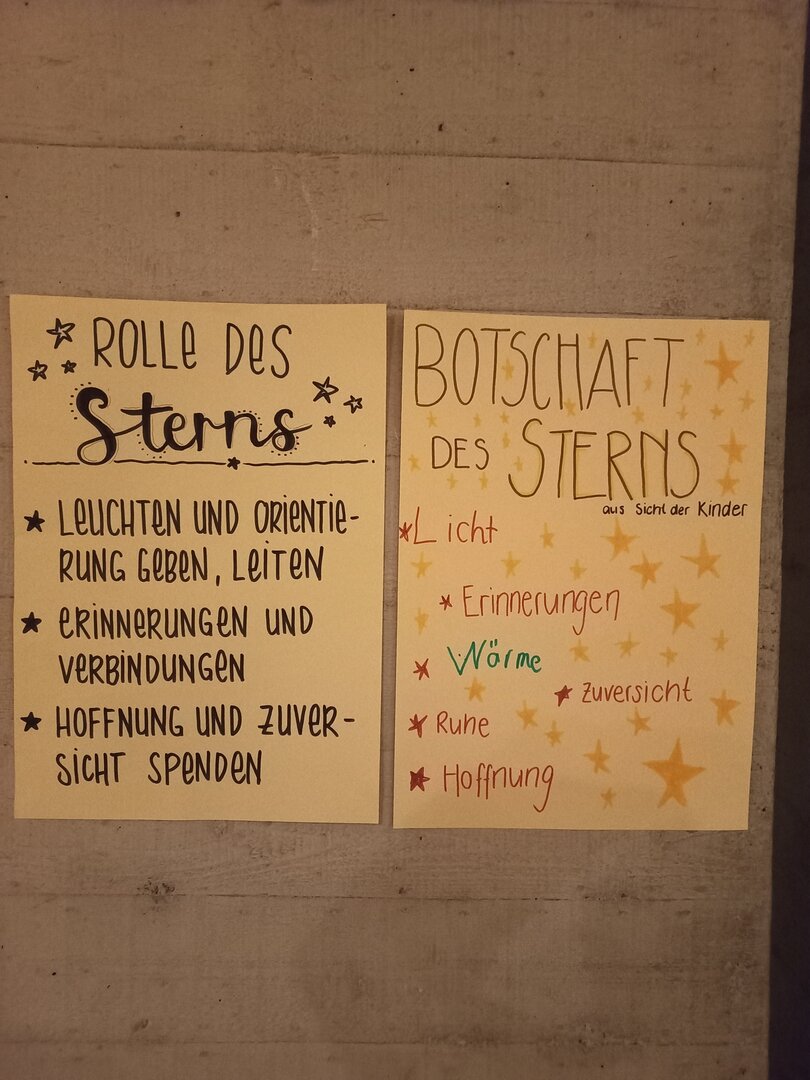 ROLLE DES
Sterns
LEUCHTEN UND ORIENTIE-
RUNG GEBEN, LEITEN
ERINNERUNGEN UND
VERBINDUNGEN
HOFFNUNG UND ZUVER-
SICHT SPENDEN
BOTSCHAFT
DES STERNS
aus Sicht der Kinder
Licht
Erinnerungen
Wärme
Zuversicht
Ruhe
Hoffnung